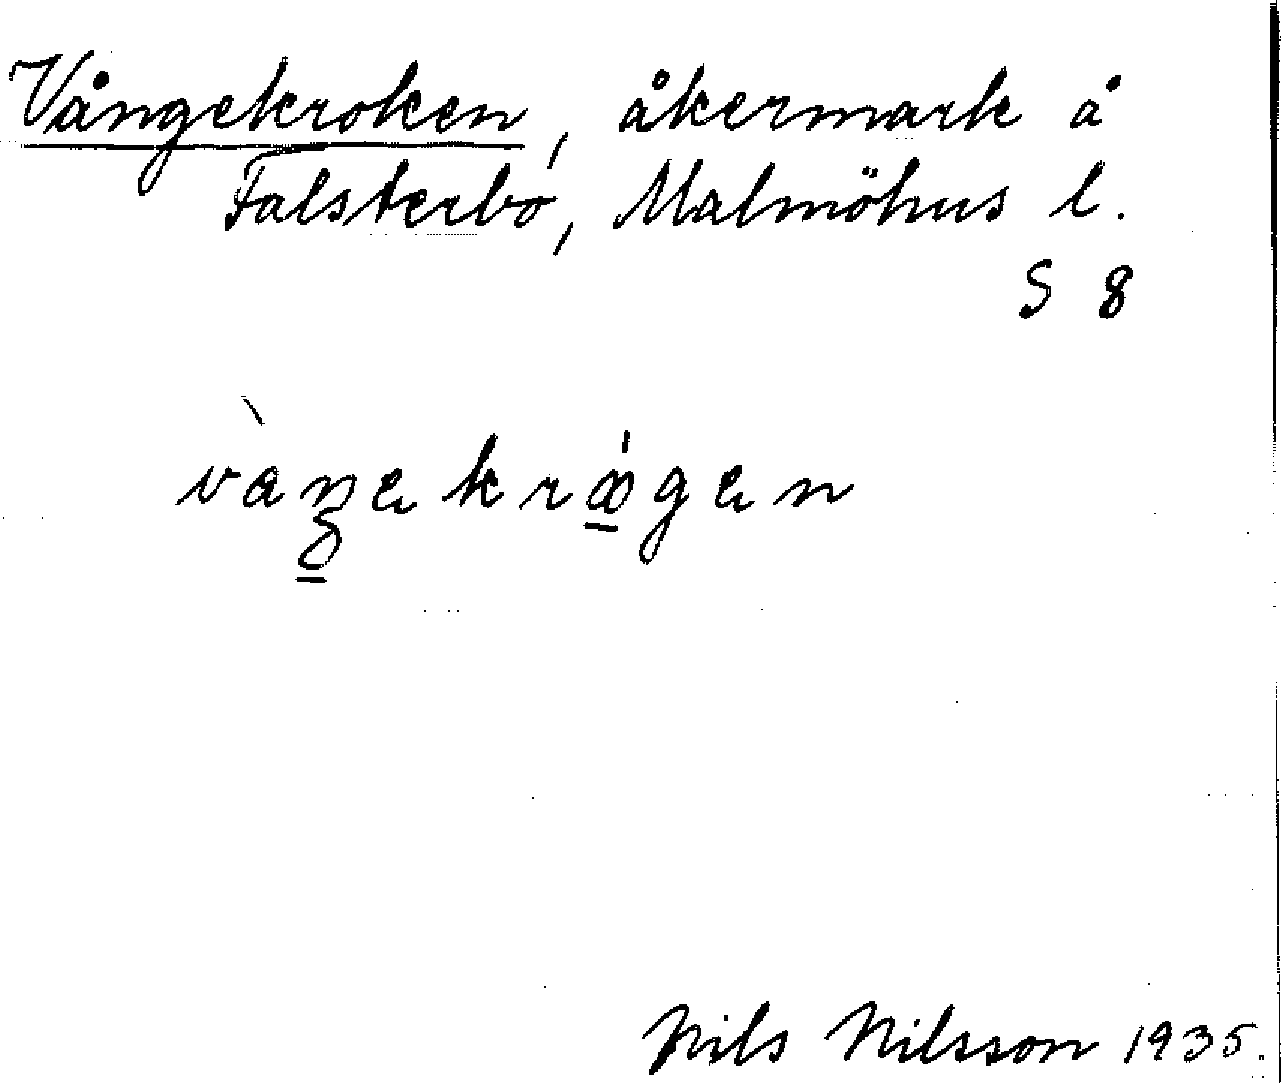 Vångekroken, åkermark å
Falsterbo, Malmöhus l.
S 8
Nils Nilsson 1935.